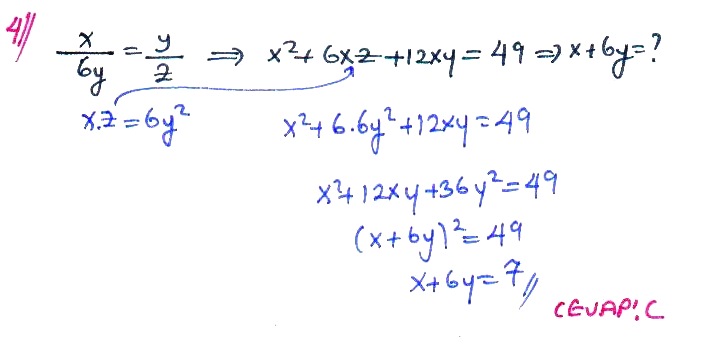 4// x/6y = y/z ⇒ x²+6xz+12xy=49 ⇒ x+6y=?
x.z=6y² x²+6.6y²+12xy=49
x²+12xy+36y²=49
(x+6y)²=49
x+6y=7//
CEVAP: C